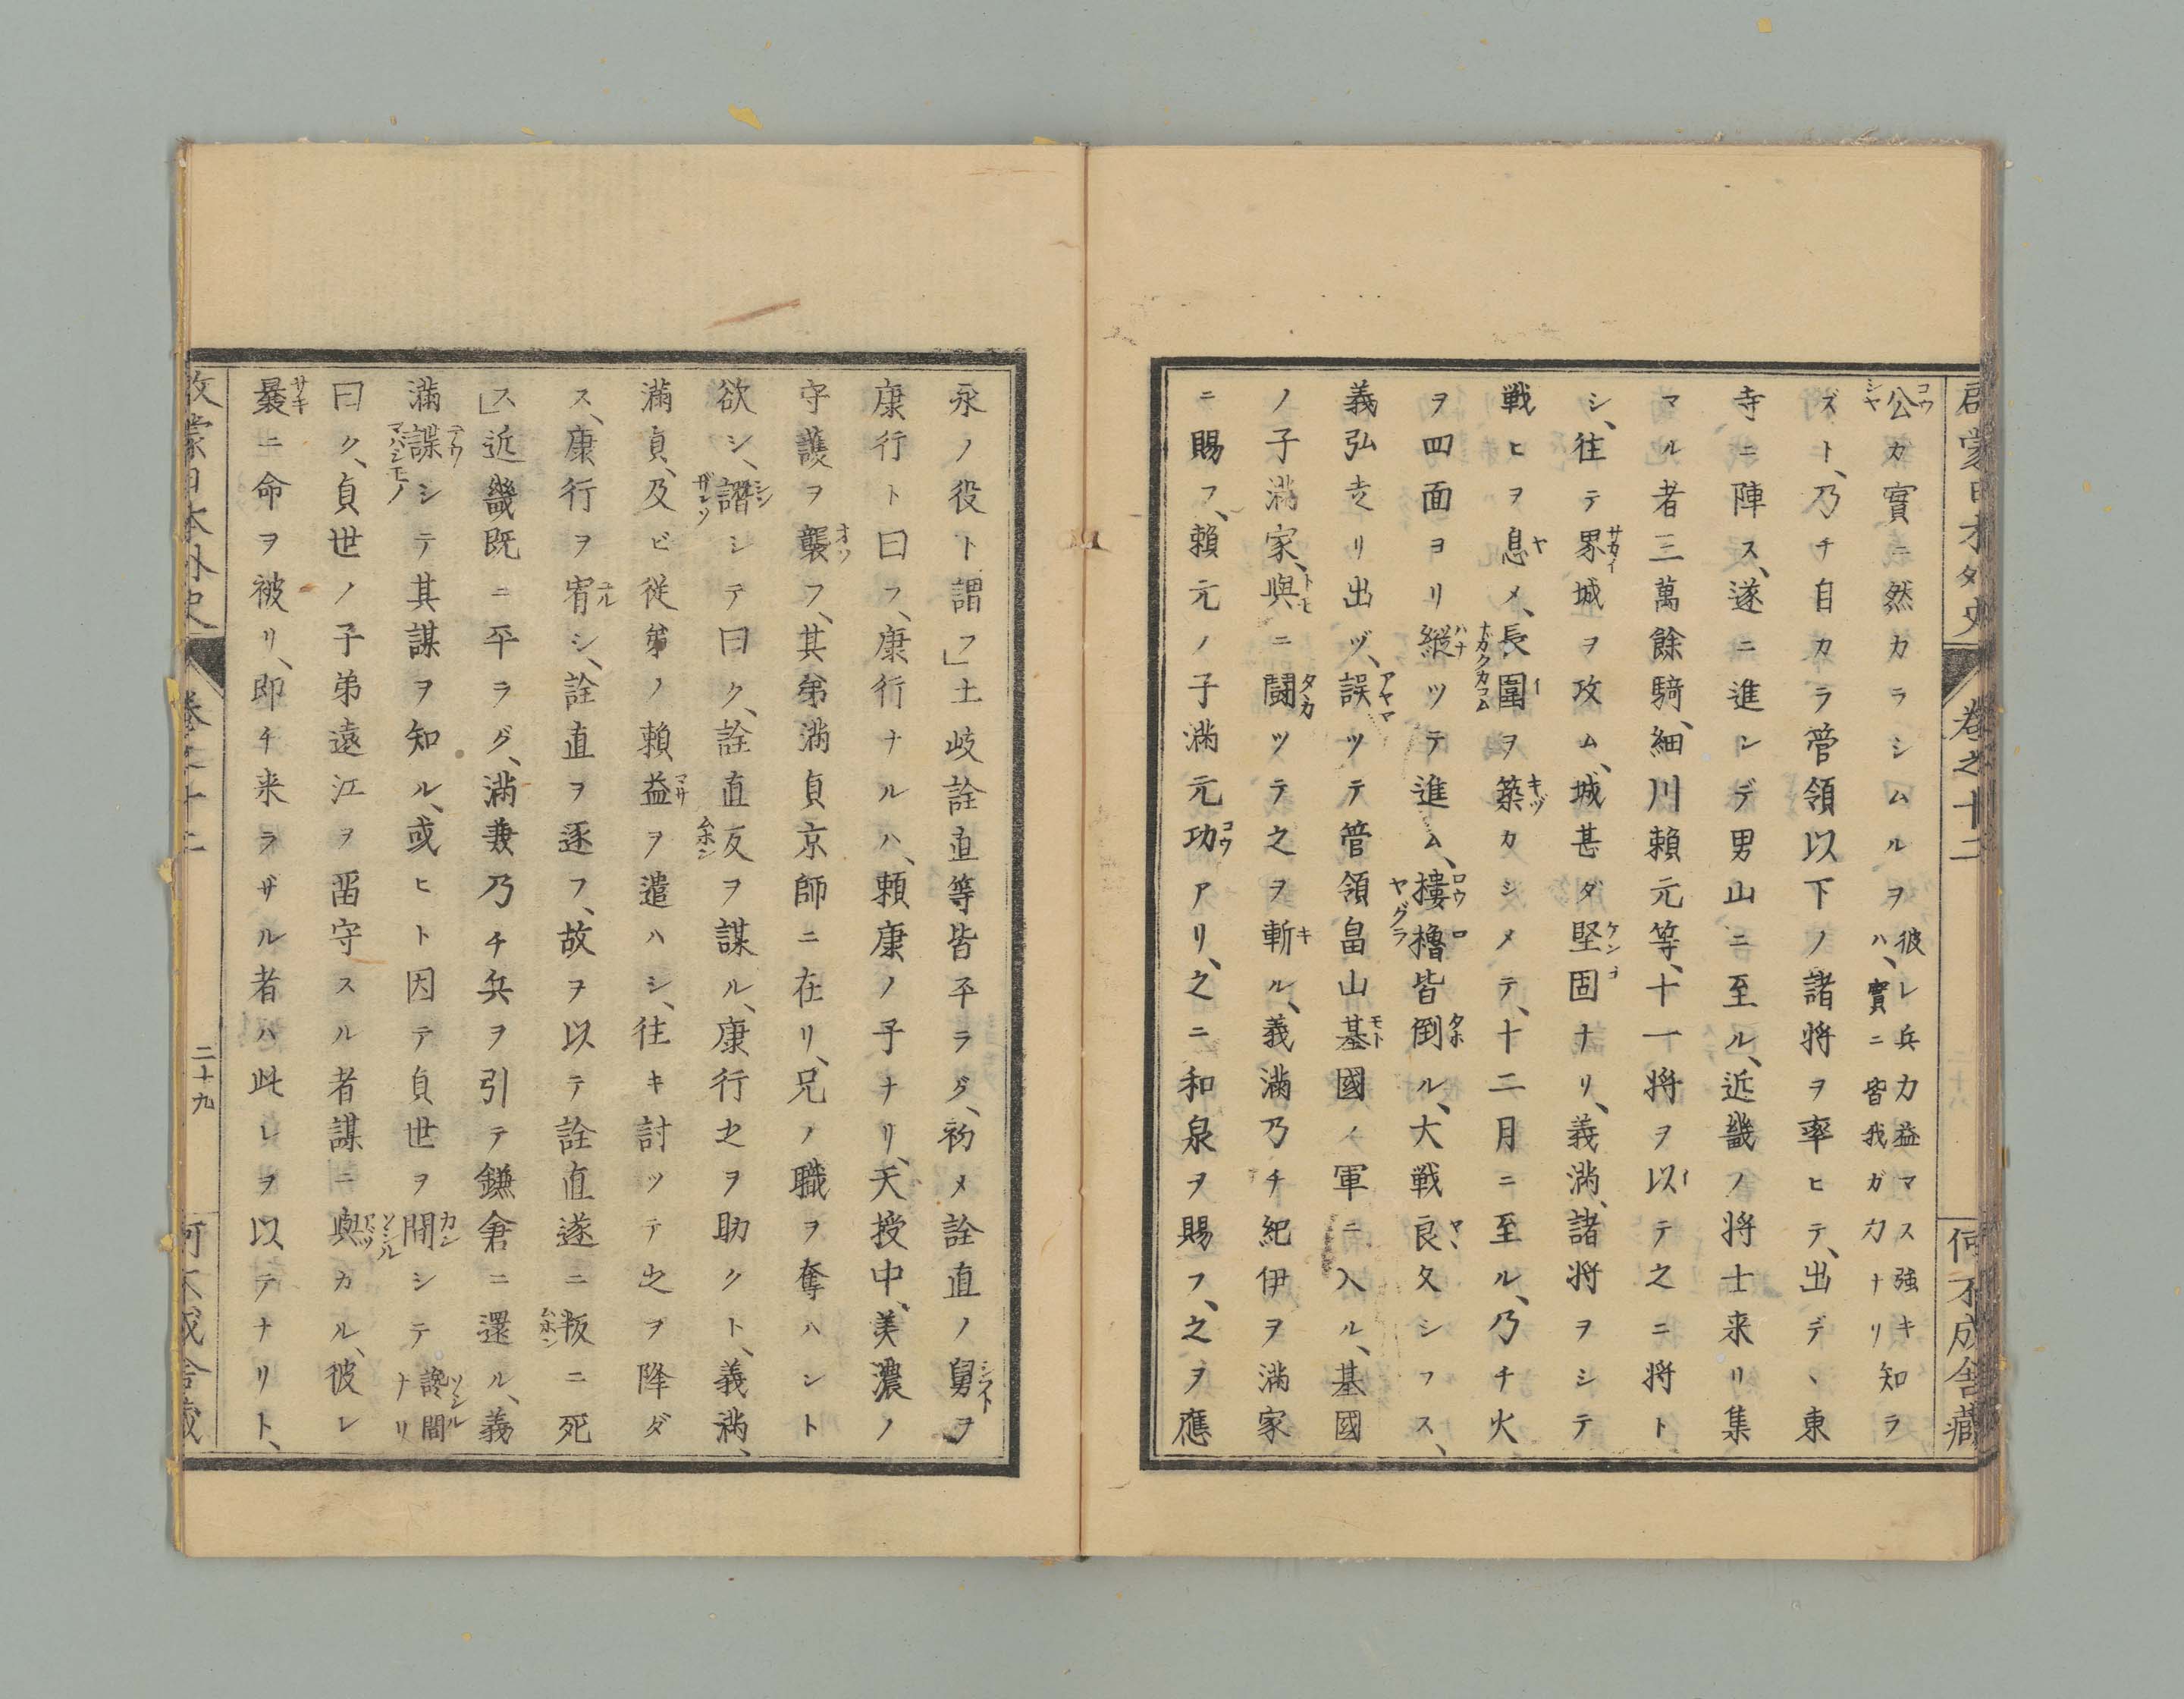 啓蒙日本外史 巻之十二 何不成舎藏
公カ實ニ然カラシムルヲ彼レ兵力益マス強キハ、實ニ皆我ガ力ナリ知ラ
ズト、乃チ自カラ管領以下ノ諸将ヲ率ヒテ、出デヽ東
寺ニ陣ス、遂ニ進ンデ男山ニ至ル、近畿ノ将士来リ集
マル者三萬餘騎、細川頼元等、十一将ヲ以テ之ニ将ト
シ、往テ界城ヲ攻ム、城甚ダ堅固ナリ、義満、諸将ヲシテ
戦ヒヲ息メ、長圍ヲ築カシメテ、十二月ニ至ル、乃チ火
ヲ四面ヨリ縦ツテ進ム、樓櫓皆倒ル、大戦良久シフス、
義弘走リ出ヅ、誤ツテ管領畠山基國ノ軍ニ入ル、基國
ノ子満家、與ニ闘ツテ之ヲ斬ル、義満乃チ紀伊ヲ満家
ニ賜フ、頼元ノ子満元功アリ、之ニ和泉ヲ賜フ、之ヲ應
永ノ役ト謂フ」土岐詮直等皆平ラグ、初メ詮直ノ舅ヲ
康行ト曰フ、康行ナルハ、頼康ノ子ナリ、天授中、美濃ノ
守護ヲ襲フ、其弟満貞京師ニ在リ、兄ノ職ヲ奪ハント
欲シ、譖シテ曰ク、詮直反ヲ謀ル、康行之ヲ助クト、義満、
満貞、及ビ従弟ノ頼益ヲ遣ハシ、往キ討ツテ之ヲ降ダ
ス、康行ヲ宥シ、詮直ヲ逐フ、故ヲ以テ詮直遂ニ叛ニ死
ス」近畿既ニ平ラグ、満兼乃チ兵ヲ引テ鎌倉ニ還ル、義
満諜シテ其謀ヲ知ル、或ヒト因テ貞世ヲ間シテ讒間ナリ
曰ク、貞世ノ子弟遠江ヲ留守スル者謀ニ與カル、彼レ
曩ニ命ヲ被リ、即チ来ラザル者ハ此レヲ以テナリト、
啓蒙日本外史 巻之十二 二十九 何不成舎藏